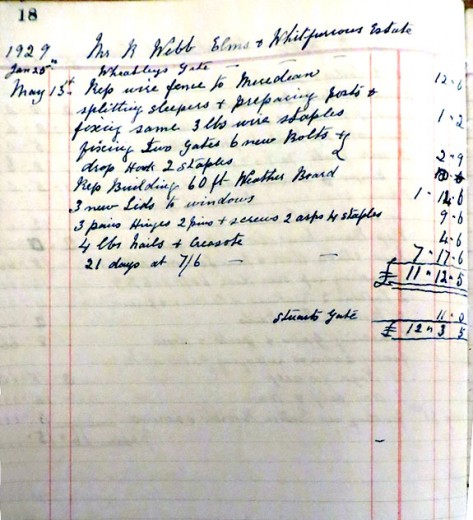 18
1929 Mr N Webb Elms & Whitpurious Estate
Jan 25th Wheatleys Gate —
May 13th Rep wire fence to Meredean 12 " 6
splitting sleepers & preparing posts &
fixing same 3 lbs wire staples 1 " 2
fixing two gates 6 new Bolts &
drop Hook 2 staples 2 " 9
Rep Building 60 ft Weather Board
3 new Lids to windows 1 " 14 " 6
3 pairs Hinges 2 pins & screws 2 asps 4 staples 9 " 6
4 lbs nails & Creasote 4 " 6
21 days at 7/6 — — 7 " 17 " 6
£ 11 " 12 " 5
Stuarts Gate 11 " 0
£ 12 " 3 5